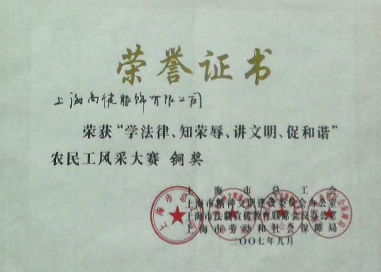 荣誉证书
上海尚健服饰有限公司
荣获“学法律、知荣辱、讲文明、促和谐”
农民工风采大赛 铜奖
上海市总工会
上海市精神文明建设委员会办公室
上海市法制宣传教育联席会议办公室
上海市劳动和社会保障局
二〇〇七年九月